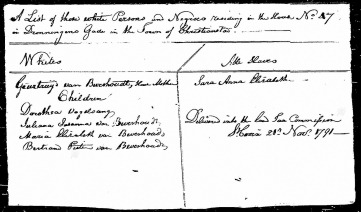 A List of those white Persons and Negroes residing in the House No. 47
in Dronningens Gade in the Town of Christiansted
Whites
Geertruyd van Beverhoudt, their Mother
Children
Dorothea
Juliana Susanna van Beverhoudt,
Maria Elizabeth van Beverhoudt,
Bertrand Pieter van Beverhoudt,
Slaves
Sara Anna Elizabeth
Delivered into the Commission
St Croix 28. Novr. 1791